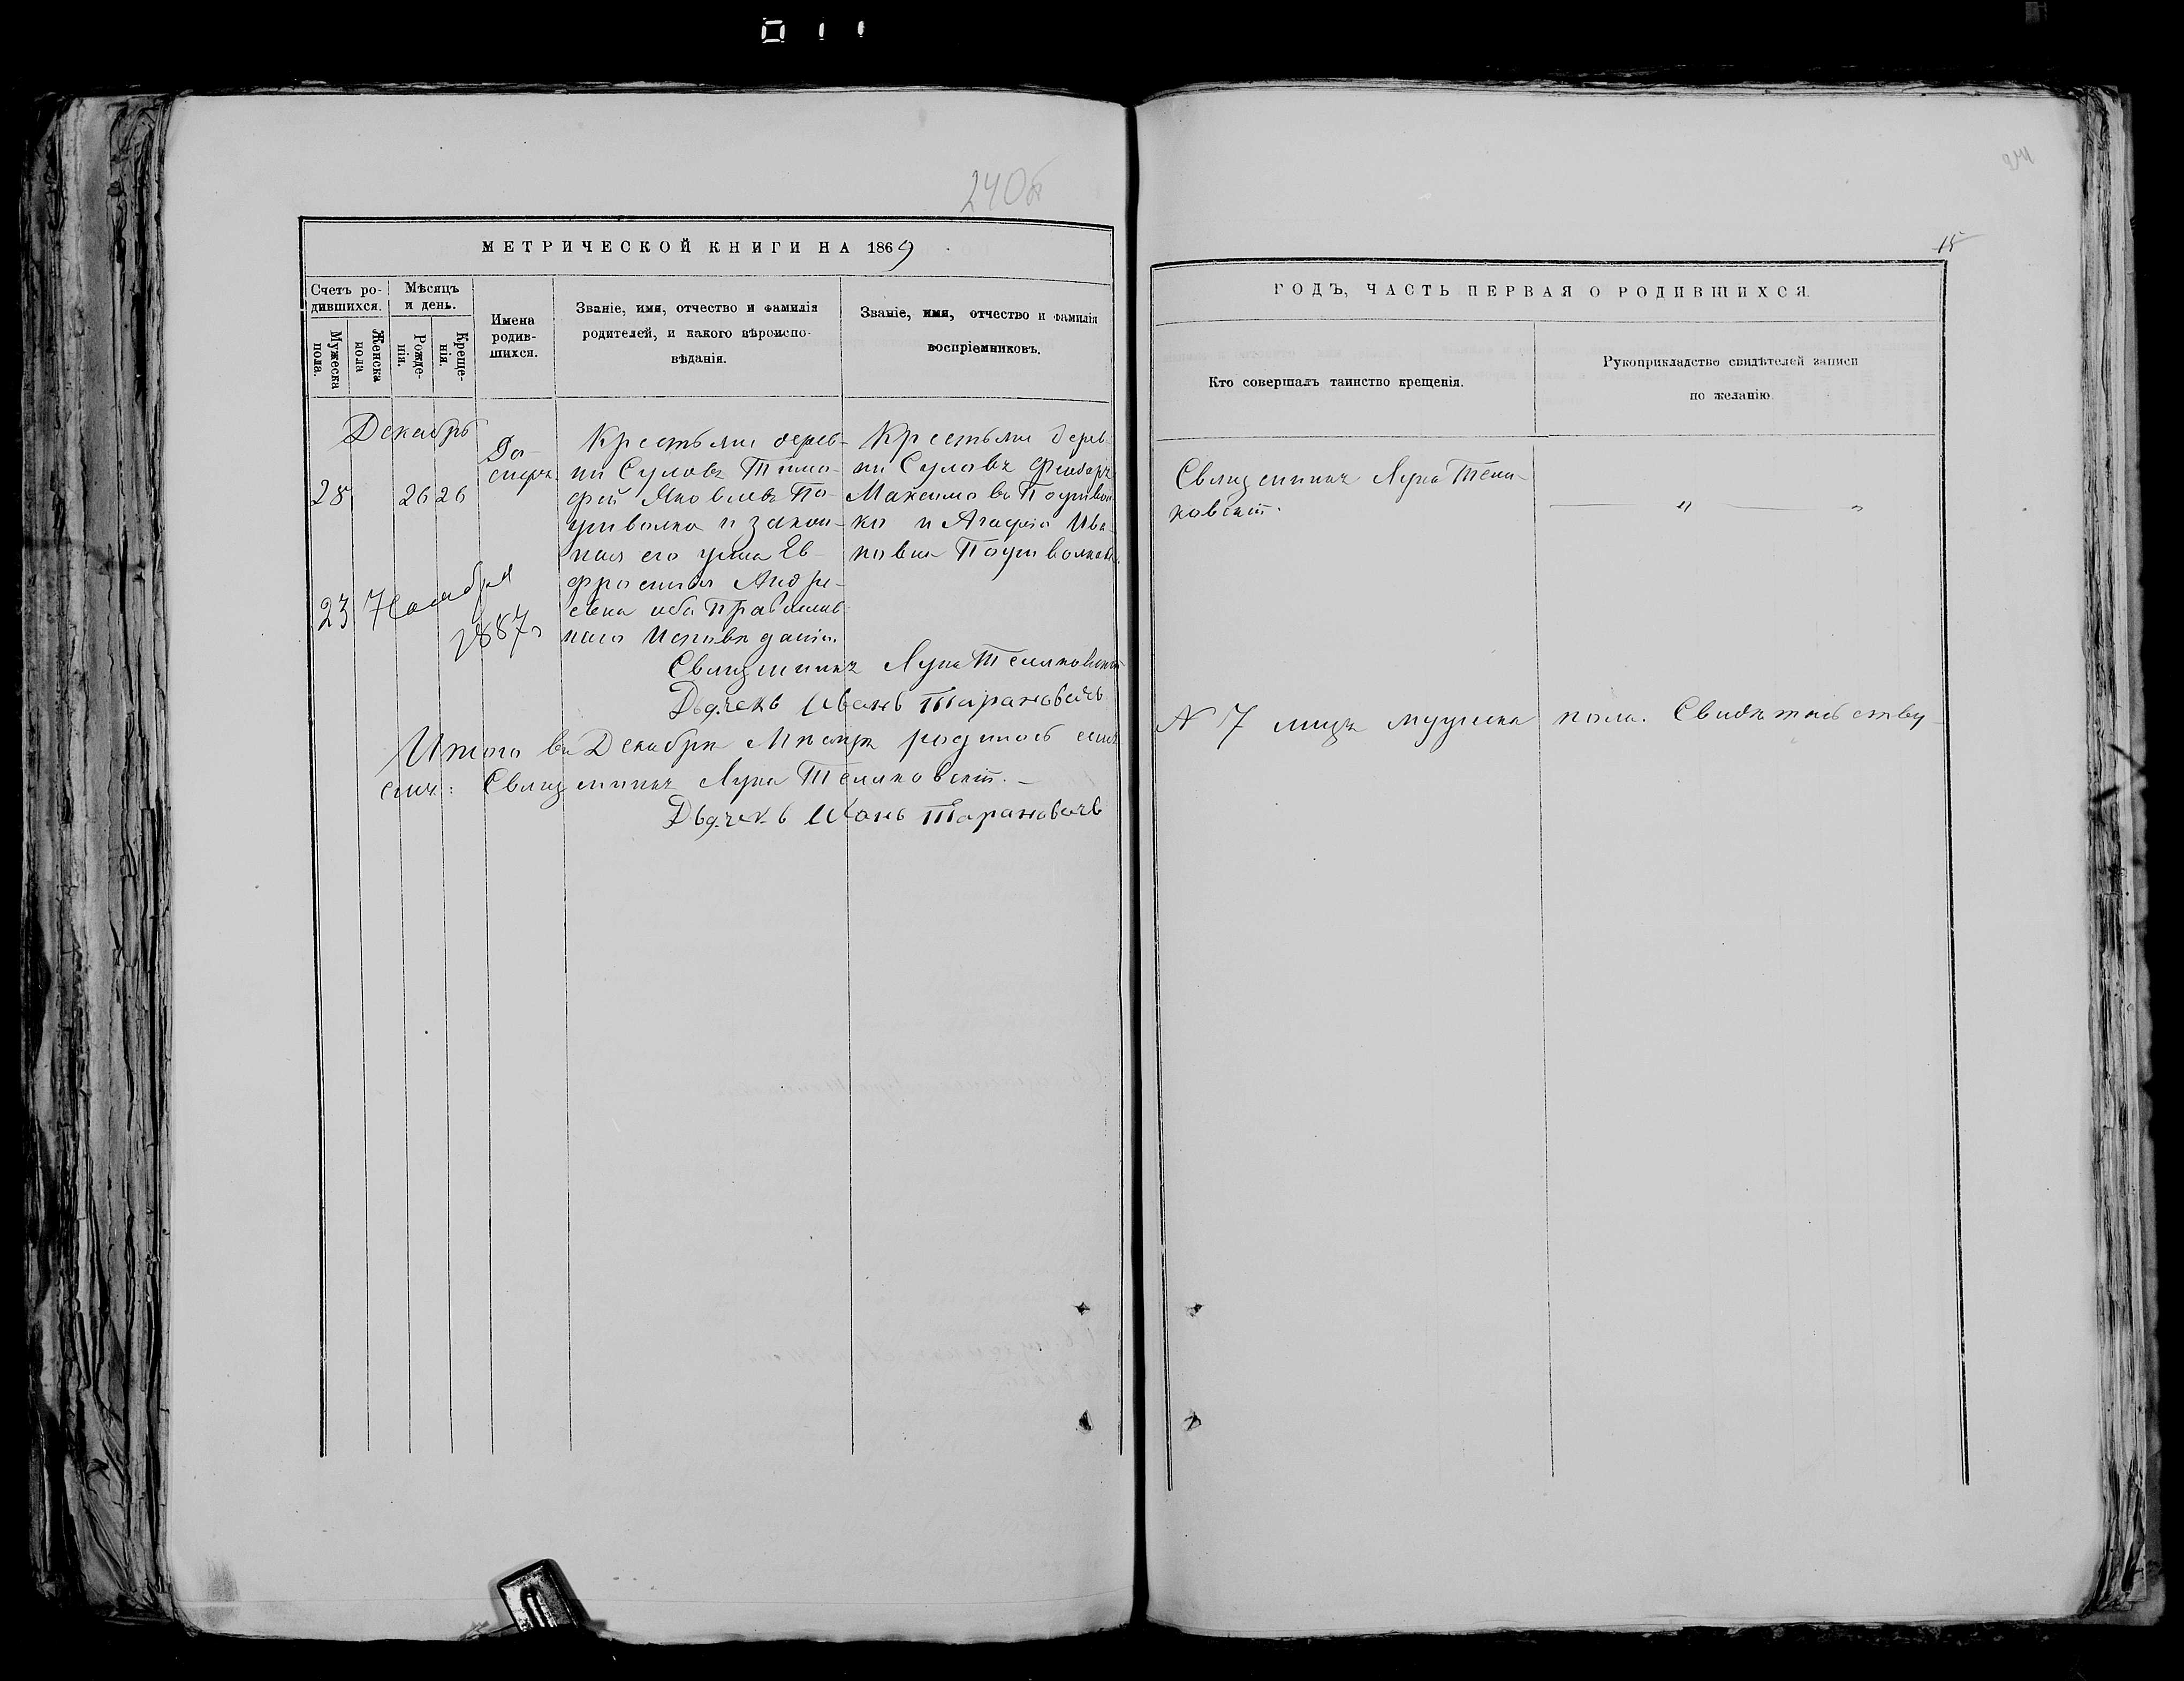 240об
МЕТРИЧЕСКОЙ КНИГИ НА 1869
Счетъ ро-
дившихся.
Мѣсяцъ
и день.
Мужеска
пола.
Женска
пола
Рожде-
нія.
Креще-
нія.
Имена
родив-
шихся.
Званіе, имя, отчество и фамилія
родителей, и какого вѣроиспо-
вѣданія.
Званіе, имя, отчество и фамилія
воспріемниковъ.
Декабрь
28 26 26
Крестьяни дерев-
ни Суловъ Тимо-
фей Яковлевъ По-
и закон-
ная его жена Ев-
фросинія Андре-
евна оба Православ-
наго Исповѣданія.
Крестьяни дерев-
ни Суловъ
Максимовъ
ко и Агафія Ива-
новна
23 Ноября
1887
Священникъ Лука
Дьячекъ Иванъ Тарановичъ
Итого въ Декабрѣ Мѣсяцѣ родилось
Священникъ Лука
Дьячекъ Иванъ Тарановичъ
241
15
ГОДЪ, ЧАСТЬ ПЕРВАЯ О РОДИВШИХСЯ.
Кто совершалъ таинство крещенія.
Рукоприкладство свидѣтелей записи
по желанію
Священникъ Лука
ковскій.
№ 7 лицъ мужеска пола. Свидѣтельству-